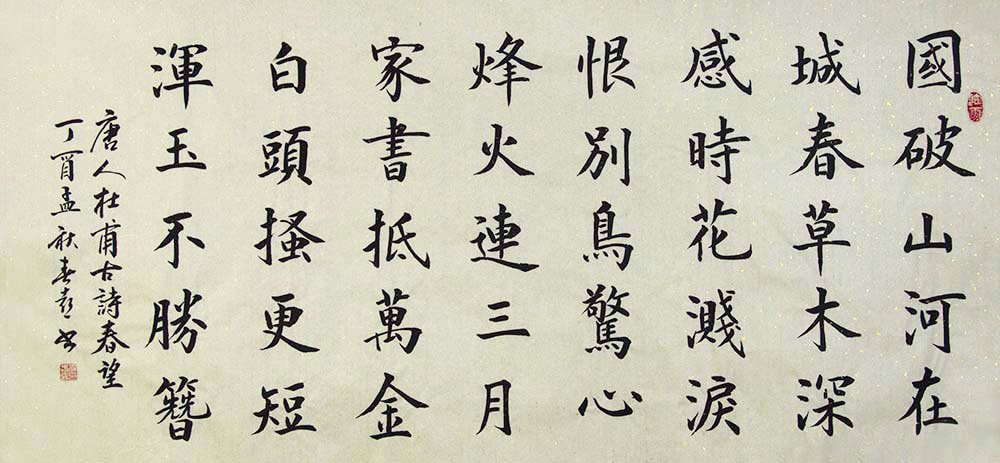 國破山河在
城春草木深
感時花濺淚
恨別鳥驚心
烽火連三月
家書抵萬金
白頭搔更短
渾玉不勝簪
唐人杜甫古詩春望
丁酉孟秋書